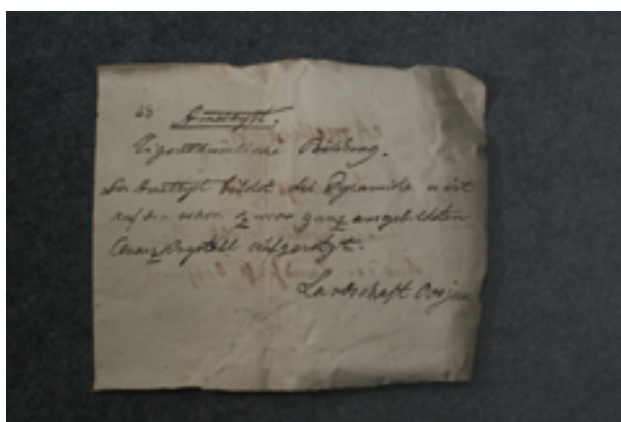 Amethyst.
Eigenthümliche Bildung.
Der Amethyst bildet die Pyramide u ist
auf den schon zuvor ganz ausgebildeten
Quarz Krystall aufgesetzt.
Landschaft